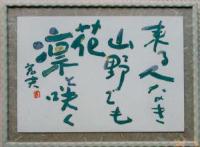 来る人なき
山野でも
花
凛と咲く